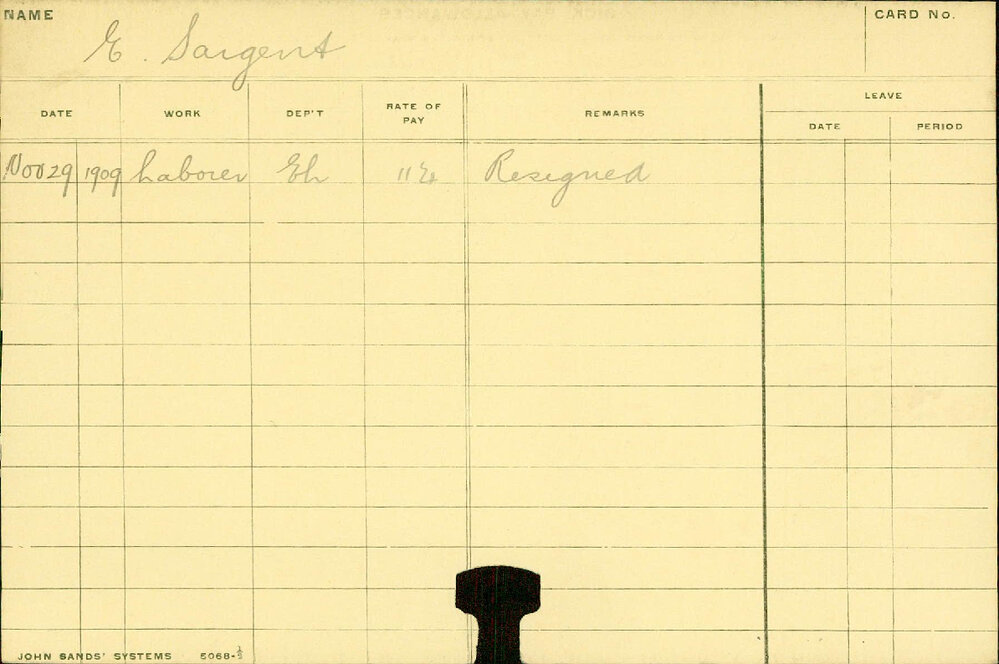 NAME CARD No.
E. Sargent
DATE WORK DEP'T RATE OF PAY REMARKS LEAVE
DATE PERIOD
Nov 29 1909 Laborer Eh Resigned
JOHN SANDS' SYSTEMS 5068-